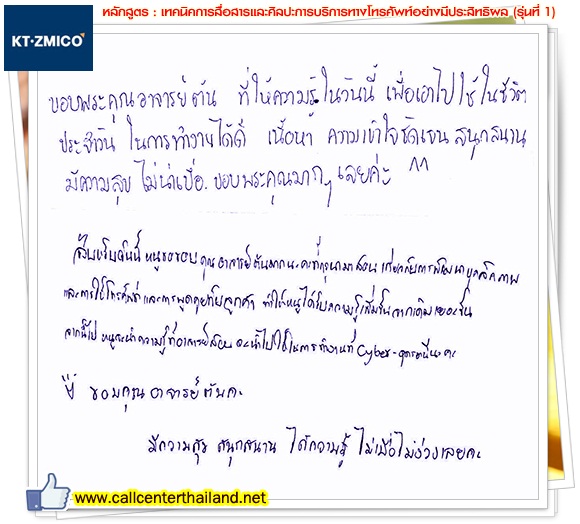 หลักสูตร : เทคนิคการสื่อสารและศิลปะการบริการทางโทรศัพท์อย่างมีประสิทธิผล (รุ่นที่ 1)
KT·ZMICO
ขอบพระคุณอาจารย์ต้น ที่ให้ความรู้ในวันนี้ เพื่อเอาไปใช้ในชีวิต
ประจำวัน ในการทำงานได้ดี เนื้อหา ความเข้าใจชัดเจน สนุกสนาน
มีความสุข ไม่น่าเบื่อ. ขอบพระคุณมากๆ เลยค่ะ ^^
สำหรับวันนี้ หนูขอขอบคุณอาจารย์ต้นมากนะคะที่กรุณามาสอน เกี่ยวกับการพัฒนาบุคลิกภาพ
และการใช้โทรศัพท์ และการพูดคุยกับลูกค้า ทำให้หนูได้รับความรู้เพิ่มขึ้นจากเดิมเยอะขึ้น
จากนี้ไป หนูจะนำความรู้ที่อาจารย์สอน จะนำไปใช้ในการทำงานที่ Cyber-อุดรธานีนะคะ
ขอบคุณ อาจารย์ต้นค่ะ
มีความสุข สนุกสนาน ได้ความรู้ ไม่เบื่อไม่ง่วงเลยค่ะ
www.callcenterthailand.net